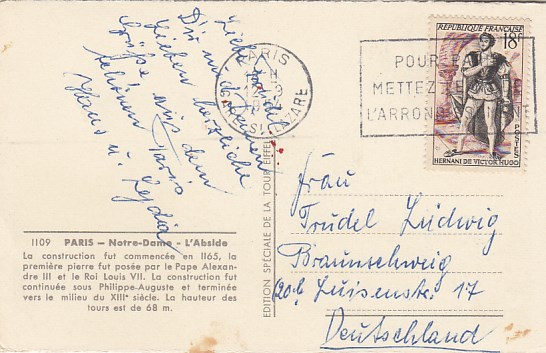 Liebe Trudel
Dir und Deinen
Lieben herzliche
Grüße aus dem
schönen Paris
Hans u. Lydia
PARIS
GARE ST LAZARE
POUR
METTEZ
L'ARRON
REPUBLIQUE FRANÇAISE
18F
POSTES
HERNANI DE VICTOR HUGO
EDITION SPÉCIALE DE LA TOUR EIFFEL
Frau
Trudel Ludwig
Braunschweig
(20b) Luisenstr. 17
Deutschland
1109 PARIS – Notre-Dame - L'Abside
La construction fut commencée en 1165, la
première pierre fut posée par le Pape Alexan-
dre III et le Roi Louis VII. La construction fut
continuée sous Philippe-Auguste et terminée
vers le milieu du XIIIe siècle. La hauteur des
tours est de 68 m.